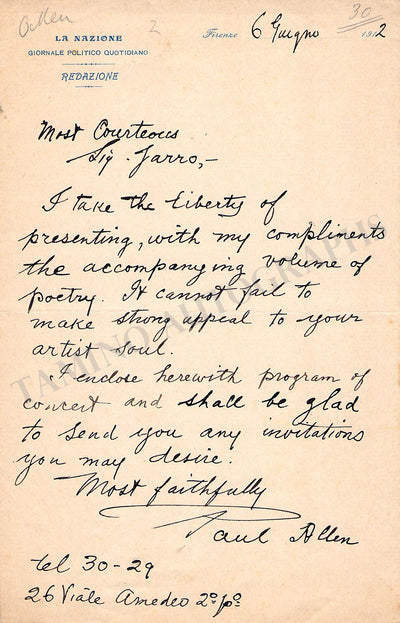 Allen
2
30
LA NAZIONE
GIORNALE POLITICO QUOTIDIANO
REDAZIONE
Firenze 6 Giugno 1912
Most Courteous
Sig. Jarro,-
I take the liberty of
presenting, with my compliments
the accompanying volume of
poetry. It cannot fail to
make strong appeal to your
artist soul.
I enclose herewith program of
concert and shall be glad
to send you any invitations
you may desire.
Most faithfully
Paul Allen
tel 30-29
26 Viale Amedeo 2º pº
TAMINO AUTOGRAPHS